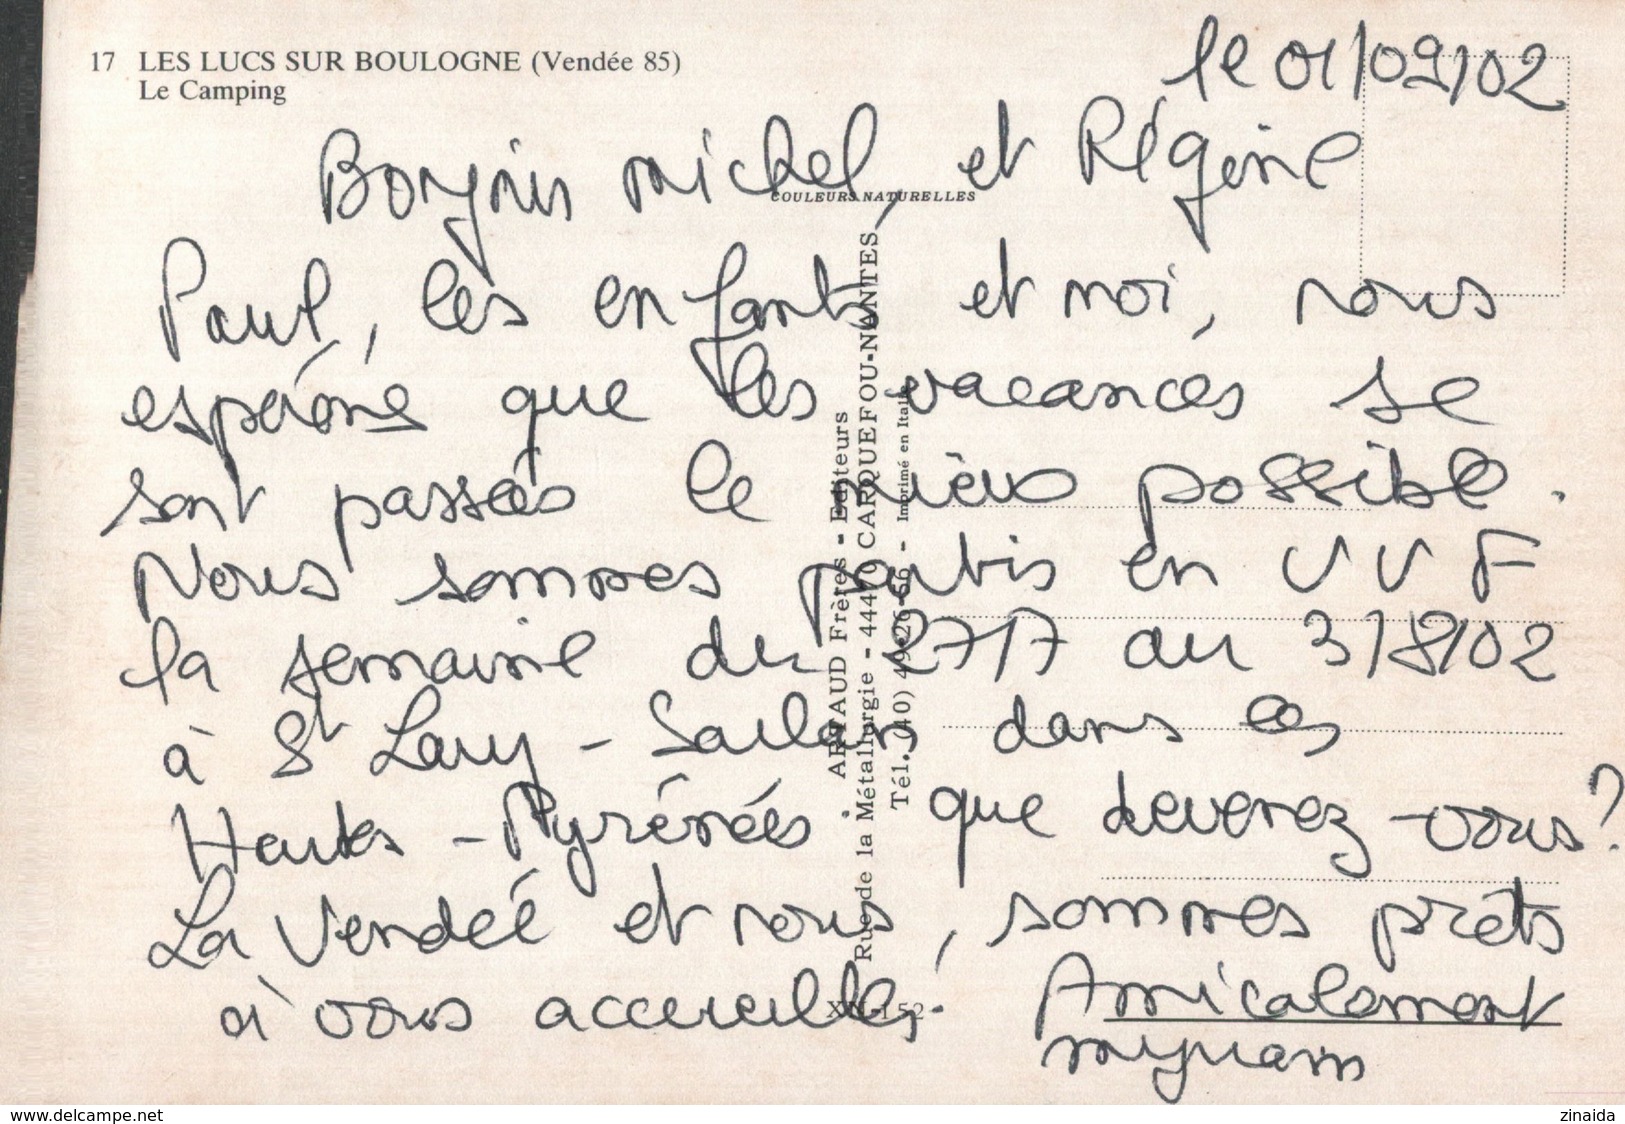 17 LES LUCS SUR BOULOGNE (Vendée 85)
Le Camping
le 01/09/02
Bonjour michel, et Régine
COULEURS NATURELLES
Paul, les enfants et moi, nous
espérons que les vacances se
sont passées le mieux possible.
Nous sommes partis en VVF
la semaine du 27/7 au 3/8/02
à St Lary-Soulan dans les
Hautes-Pyrénées. que devenez-vous?
La Vendée et nous, sommes prêts
à vous accueillir. Amicalement
ARTAUD Frères - Editeurs
Rue de la Métallurgie - 44470 CARQUEFOU-NANTES
Tél. (40) 49-26-66 - Imprimé en Italie
www.delcampe.net
zinaida